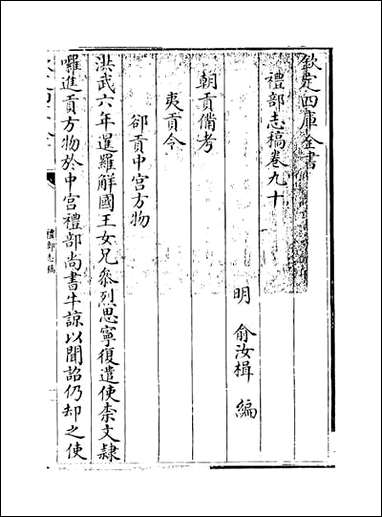 欽定四庫全書
禮部志稿卷九十
明 俞汝楫 編
朝貢備考
夷貢令
卻貢中宮方物
洪武六年暹羅觧國王女兄叅烈思寧復遣使柰文隸
囉進貢方物於中宮禮部尚書牛諒以聞詔仍却之使
禮部志稿